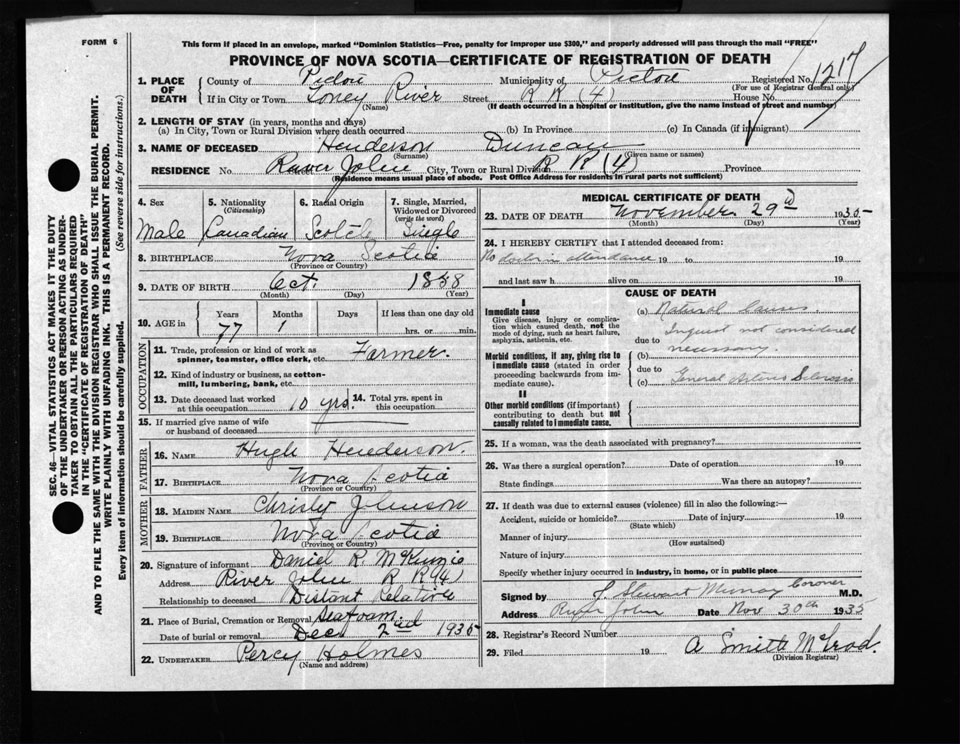 FORM 6
This form if placed in an envelope, marked "Dominion Statistics—Free, penalty for improper use $300," and properly addressed will pass through the mail "FREE"
PROVINCE OF NOVA SCOTIA—CERTIFICATE OF REGISTRATION OF DEATH
1. PLACE OF DEATH County of Pictou Municipality of Pictou Registered No. 1217
(For use of Registrar General only)
If in City or Town Toney River Street R R (4) House No.
(Name) (If death occurred in a hospital or institution, give the name instead of street and number)
2. LENGTH OF STAY (in years, months and days)
(a) In City, Town or Rural Division where death occurred (b) In Province (c) In Canada (if immigrant)
3. NAME OF DECEASED Henderson Duncan
(Surname) (Given name or names)
RESIDENCE No. River John City, Town or Rural Division R R (4) Province
(Residence means usual place of abode. Post Office Address for residents in rural parts not sufficient)
4. Sex 5. Nationality (Citizenship) 6. Racial Origin 7. Single, Married, Widowed or Divorced (write the word)
Male Canadian Scotch Single
8. BIRTHPLACE Nova Scotia
(Province or Country)
9. DATE OF BIRTH Oct. 1858
(Month) (Day) (Year)
10. AGE in Years Months Days If less than one day old
77 1 hrs. or min.
OCCUPATION
11. Trade, profession or kind of work as spinner, teamster, office clerk, etc. Farmer.
12. Kind of industry or business, as cotton-mill, lumbering, bank, etc.
13. Date deceased last worked at this occupation 10 yrs. 14. Total yrs. spent in this occupation
15. If married give name of wife or husband of deceased
FATHER
16. NAME Hugh Henderson.
17. BIRTHPLACE Nova Scotia
(Province or Country)
MOTHER
18. MAIDEN NAME Christy Johnson
19. BIRTHPLACE Nova Scotia
(Province or Country)
20. Signature of informant Daniel R. McKenzie
Address River John R R (4)
Relationship to deceased Distant Relative
21. Place of Burial, Cremation or Removal Seafoam.
Date of burial or removal Dec 2nd 1935
22. UNDERTAKER Percy Holmes
(Name and address)
MEDICAL CERTIFICATE OF DEATH
23. DATE OF DEATH November 29th 1935
(Month) (Day) (Year)
24. I HEREBY CERTIFY that I attended deceased from:
No doctor in attendance 19 to 19
and last saw h alive on 19
CAUSE OF DEATH
I
Immediate cause
Give disease, injury or complication which caused death, not the mode of dying, such as heart failure, asphyxia, asthenia, etc.
(a) Natural Causes.
Inquest not considered
due to
necessary.
Morbid conditions, if any, giving rise to immediate cause (stated in order proceeding backwards from immediate cause).
(b)
due to
(c) General Arterio Sclerosis
II
Other morbid conditions (if important) contributing to death but not causally related to immediate cause.
25. If a woman, was the death associated with pregnancy?
26. Was there a surgical operation? Date of operation 19
State findings Was there an autopsy?
27. If death was due to external causes (violence) fill in also the following:—
Accident, suicide or homicide? Date of injury 19
(State which)
Manner of injury
(How sustained)
Nature of injury
Specify whether injury occurred in industry, in home, or in public place
Signed by J. Stewart Murray Coroner M.D.
Address River John Date Nov 30th 1935
28. Registrar's Record Number
29. Filed 19 A Smith McLeod.
(Division Registrar)
SEC. 46—VITAL STATISTICS ACT MAKES IT THE DUTY
OF THE UNDERTAKER OR PERSON ACTING AS UNDER-
TAKER TO OBTAIN ALL THE PARTICULARS REQUIRED
IN THE "CERTIFICATE OF REGISTRATION OF DEATH"
AND TO FILE THE SAME WITH THE DIVISION REGISTRAR WHO SHALL ISSUE THE BURIAL PERMIT.
WRITE PLAINLY WITH UNFADING INK. THIS IS A PERMANENT RECORD.
Every item of information should be carefully supplied. (See reverse side for instructions.)